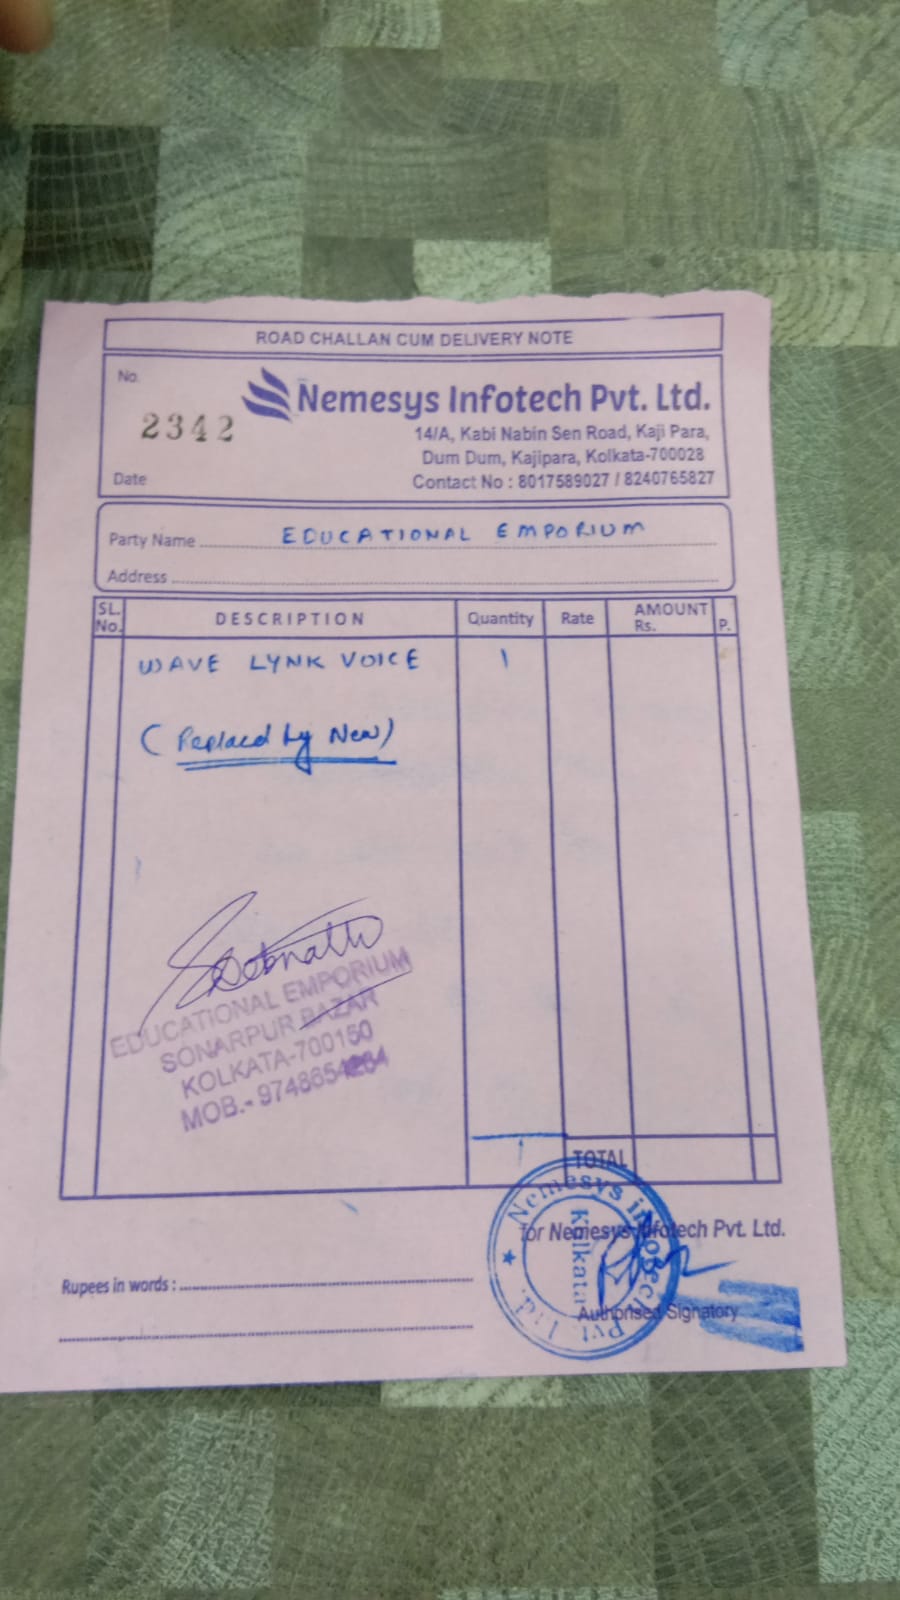 ROAD CHALLAN CUM DELIVERY NOTE
No.
2342
Nemesys Infotech Pvt. Ltd.
14/A, Kabi Nabin Sen Road, Kaji Para,
Dum Dum, Kajipara, Kolkata-700028
Date
Contact No : 8017589027 / 8240765827
Party Name EDUCATIONAL EMPORIUM
Address
SL. No. DESCRIPTION Quantity Rate AMOUNT Rs. P.
WAVE LYNK VOICE 1
(Replaced by New)
EDUCATIONAL EMPORIUM
SONARPUR BAZAR
KOLKATA-700150
MOB.-
TOTAL
1
Nemesys Infotech Pvt. Ltd.
Kolkata
for Nemesys Infotech Pvt. Ltd.
Rupees in words :
Authorised Signatory